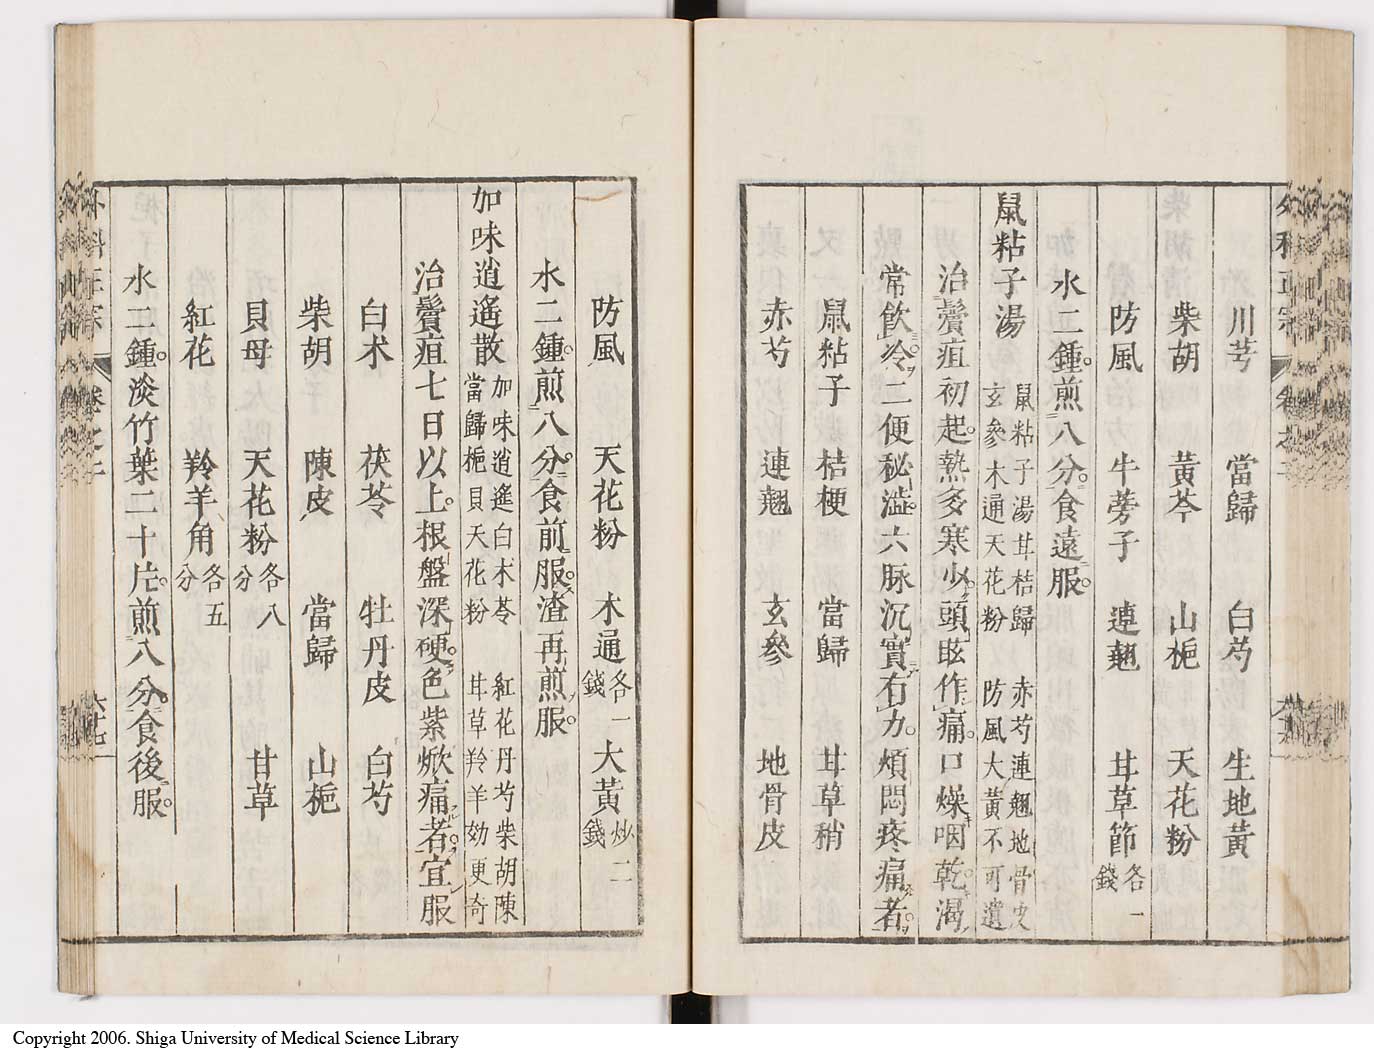 川芎 當歸 白芍 生地黃
柴胡 黃芩 山梔 天花粉
防風 牛蒡子 連翹 甘草節各一錢
水二鍾煎八分食遠服
鼠粘子湯 鼠粘子湯甘桔歸 赤芍連翹地骨皮
玄參木通天花粉 防風大黃不可遺
治鬢疽初起熱多寒少頭眩作痛口燥咽乾渴
常飲冷二便秘澁六脉沉實有力煩悶疼痛者
鼠粘子 桔梗 當歸 甘草稍
赤芍 連翹 玄參 地骨皮
防風 天花粉 木通各一錢 大黃炒二錢
水二鍾煎八分食前服渣再煎服
加味逍遙散 加味逍遙白朮苓 紅花丹芍柴胡陳
當歸梔貝天花粉 甘草羚羊効更奇
治鬢疽七日以上根盤深硬色紫焮痛者宜服
白朮 茯苓 牡丹皮 白芍
柴胡 陳皮 當歸 山梔
貝母 天花粉各八分 甘草
紅花 羚羊角各五分
水二鍾淡竹葉二十片煎八分食後服
外科正宗 卷之二
Copyright 2006. Shiga University of Medical Science Library